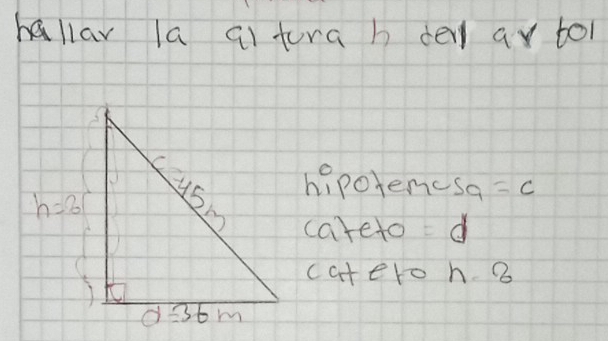 hallar la altura h del arbol
c=45m
h=?
d=36m
hipotemesa = c
cateto = d
cateto h = ?